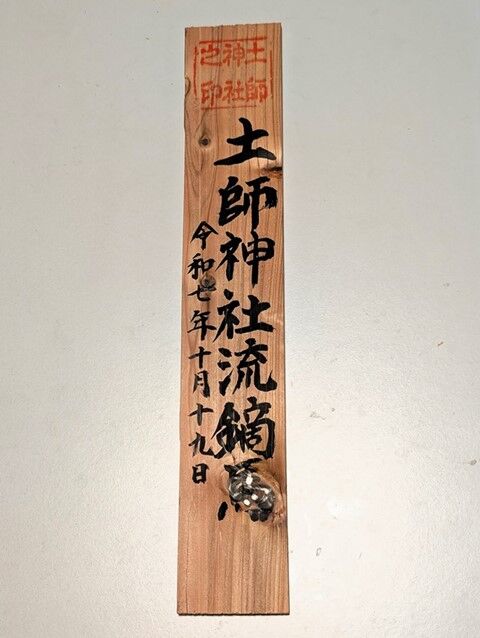 土師神社之印
土師神社流鏑馬
令和七年十月十九日